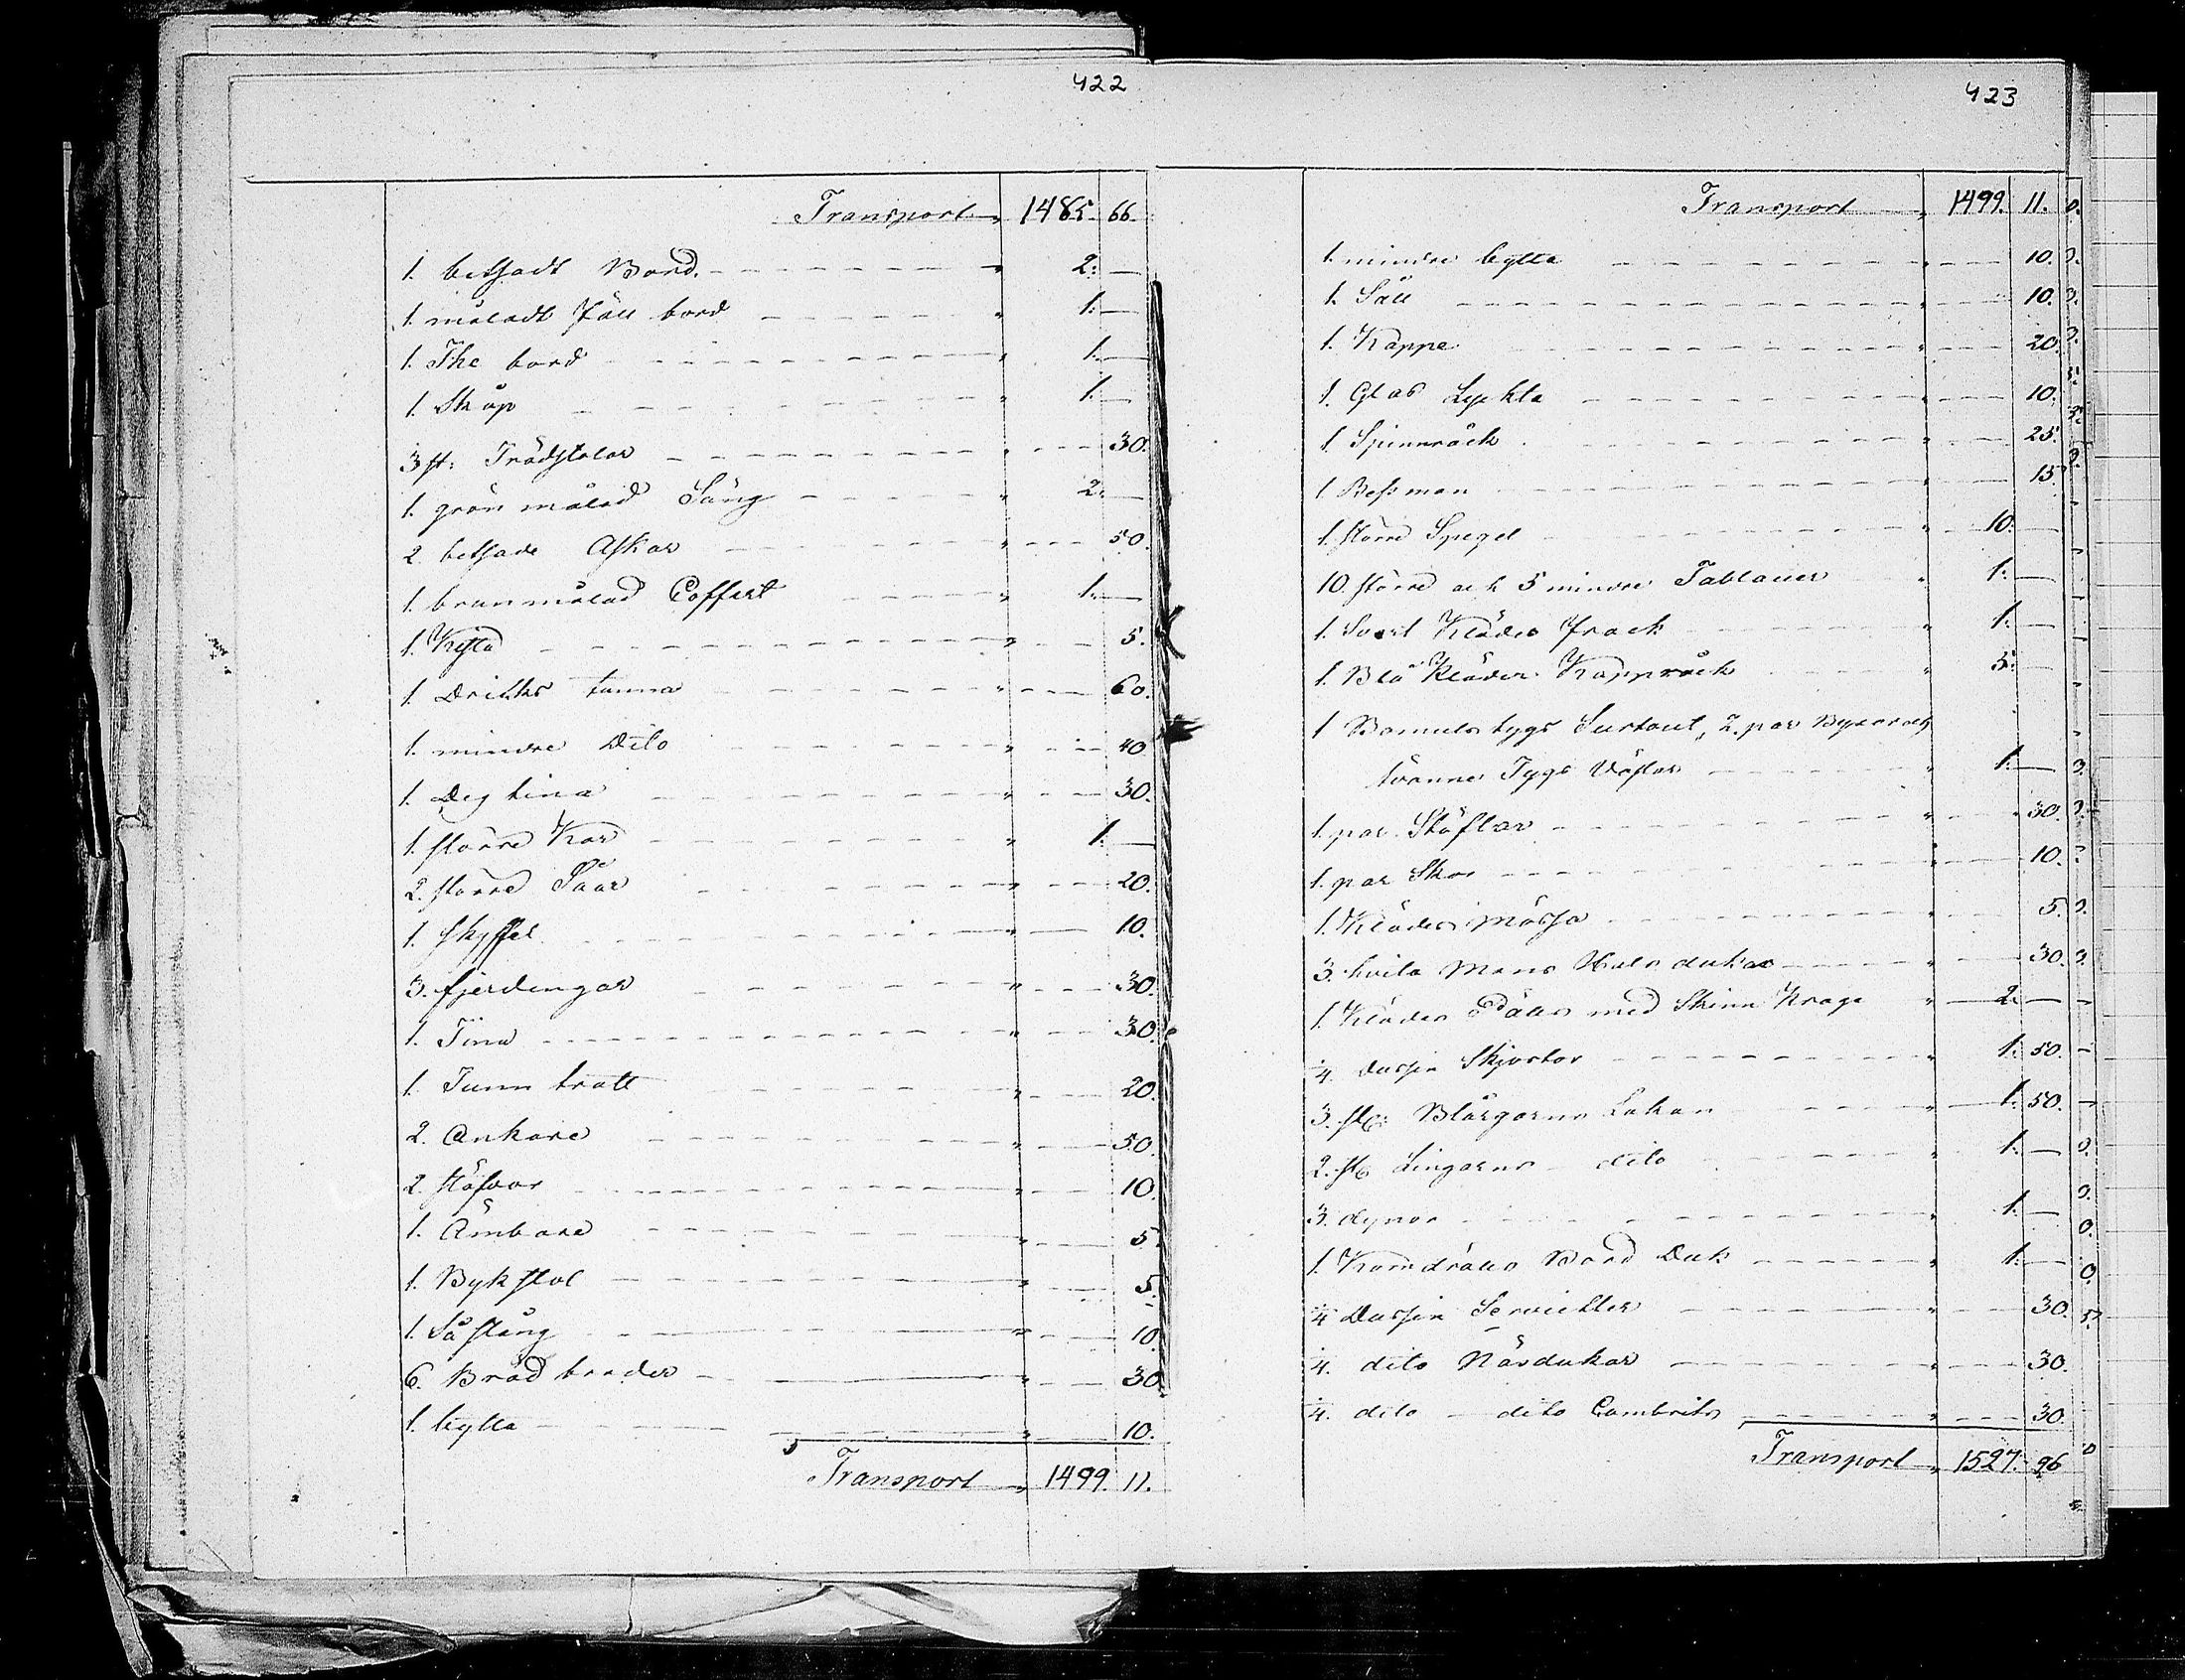 422
Transport 1485. 66.
1. betsadt Bord. 2: —
1. måladt Fäll bord 1: —
1. The bord 1: —
1. Skåp 1: —
3 st: Trädstolar 30.
1. grön målad Säng 2: —
2. betsade Askar 50.
1. brunmålad Coffert 1: —
1. Kista 5.
1. Dricks tunna 60.
1. mindre Dito 40.
1. Deg tina 30.
1. större Kar 1: —
2. större Såar 20.
1. skyffel 10.
3. fjerdingar 30.
1. Tina 30.
1. Tunn tratt 20.
2. Ankare 50.
2. stäfvor 10.
1. Ämbare 5.
1. Bykstol 5.
1. Så stång 10.
6. Bröd bräder 30.
1. bytta 10.
Transport 1499. 11.
423
Transport 1499. 11.
1. mindre bytta 10.
1. Såll 10.
1. Kappe 20.
1. Glas Lykta 10.
1. Spinnråck 25.
1. Bessman 15.
1. större Spegel 10. —
10. större och 5 mindre Tablauer 1: —
1. Svart Klädes frack 1: —
1. Blå Klädes Kappråck 5: —
1 Bomulstygs Surtout, 2. par Byxor och
tvänne Tygs Västar 1: —
1. par Stöflar 30.
1. par Skor 10.
1. Klädes Mössa 5.
3. hvita Mans Halsdukar 30.
1. Klädes Päls med Skinn Krage 2. —
4. dussin Skjortor 1: 50.
3. st: Blårgarns Lakan 1: 50.
2. st: Lingarns dito 1: —
3. dynor 1: —
1. Kamdrälls Bord Duk 1: —
4 Dussin Servietter 30.
4. dito Näsdukar 30.
4. dito — dito Cambrits 30.
Transport 1527. 96